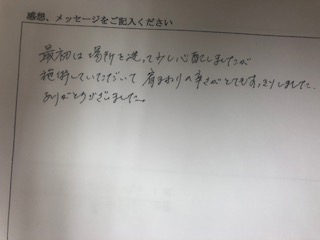 感想、メッセージをご記入ください
最初は場所を迷って少し心配しましたが
施術していただいて肩まわりの辛さがとてもすっきりしました。
ありがとうございました。